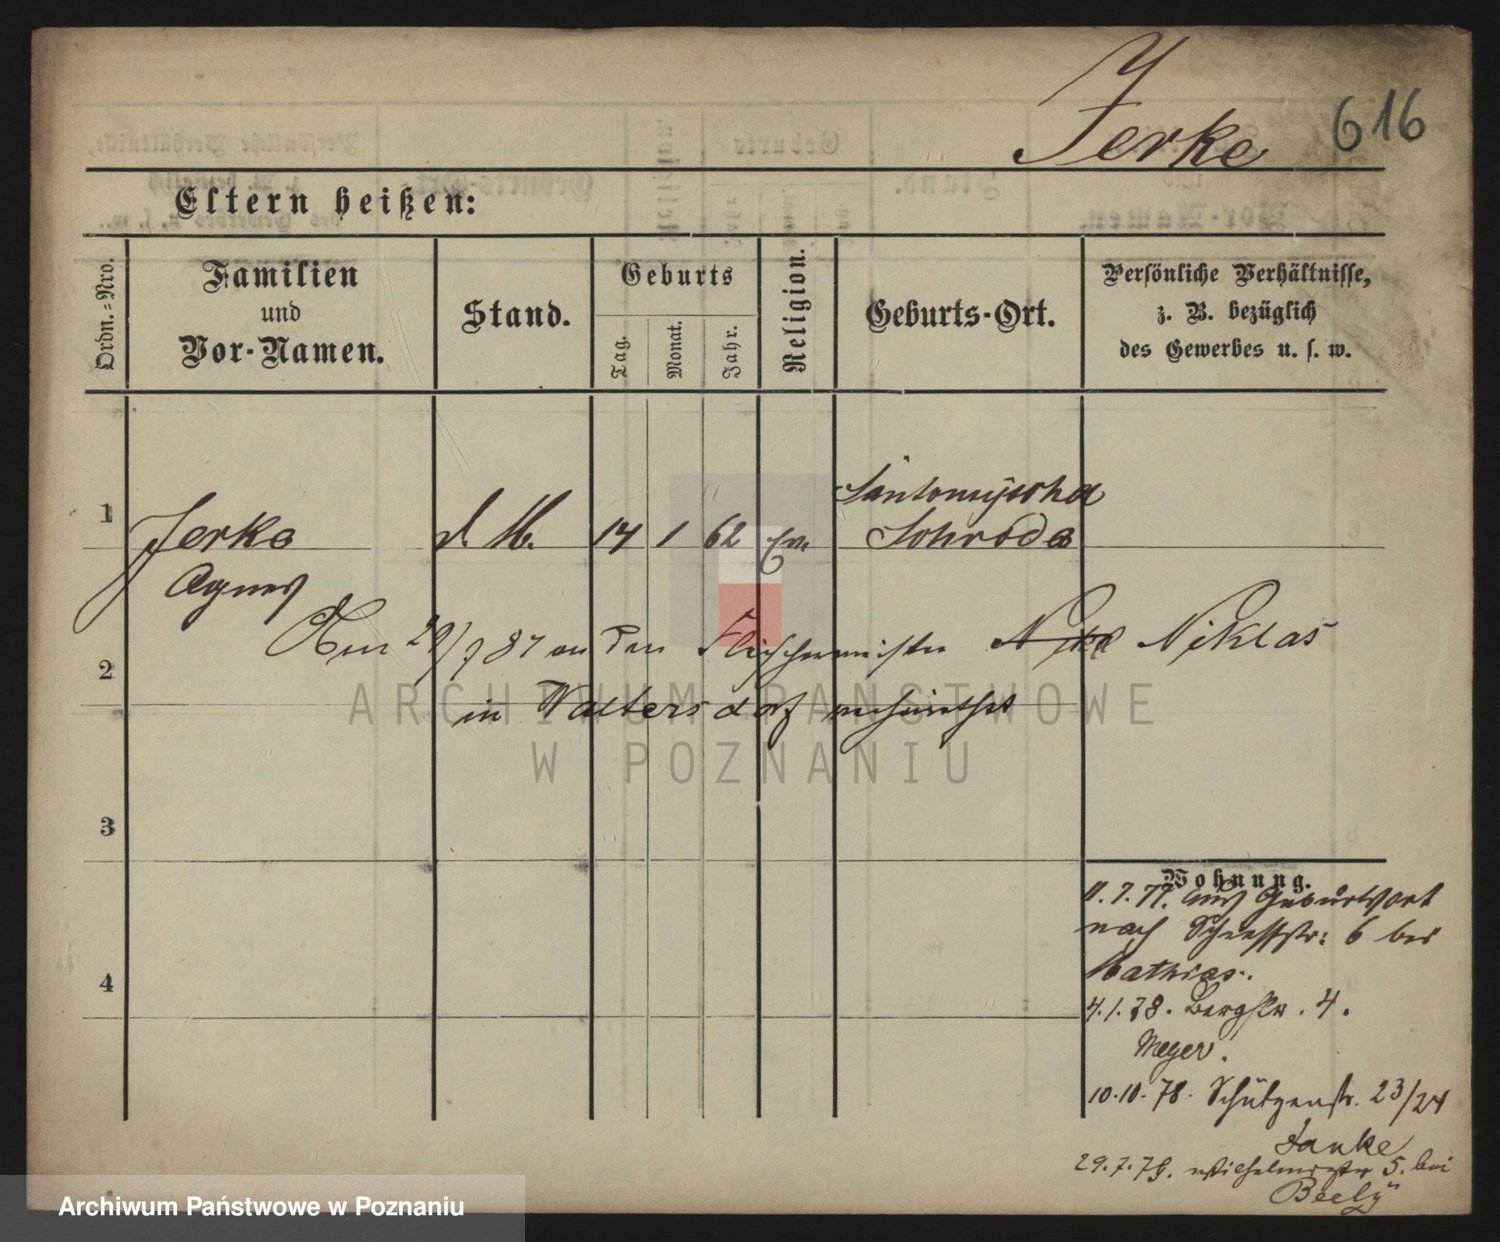 Jerke 616
Eltern heißen:
Ordn.-Nro.
Familien
und
Vor-Namen.
Stand.
Geburts
Tag.
Monat.
Jahr.
Religion.
Geburts-Ort.
Persönliche Verhältnisse,
z. B. bezüglich
des Gewerbes u. s. w.
1
Jerke
Agnes
d. M.
14 1 62 Ev.
Santomyschel
Schroda
Am 29/7 87 an den Fleischermeister Niklas
2
in Waltersdorf verheirathet
3
4
Wohnung.
11.7.77. aus Geburtsort
nach 6 bei
Mathias.
4.1.78. Bergstr. 4.
Meyer.
10.10.78. Schützenstr. 23/24
Janke
29.7.79. Wilhelmsstr 5. bei
Beely
ARCHIWUM PAŃSTWOWE
W POZNANIU
Archiwum Państwowe w Poznaniu